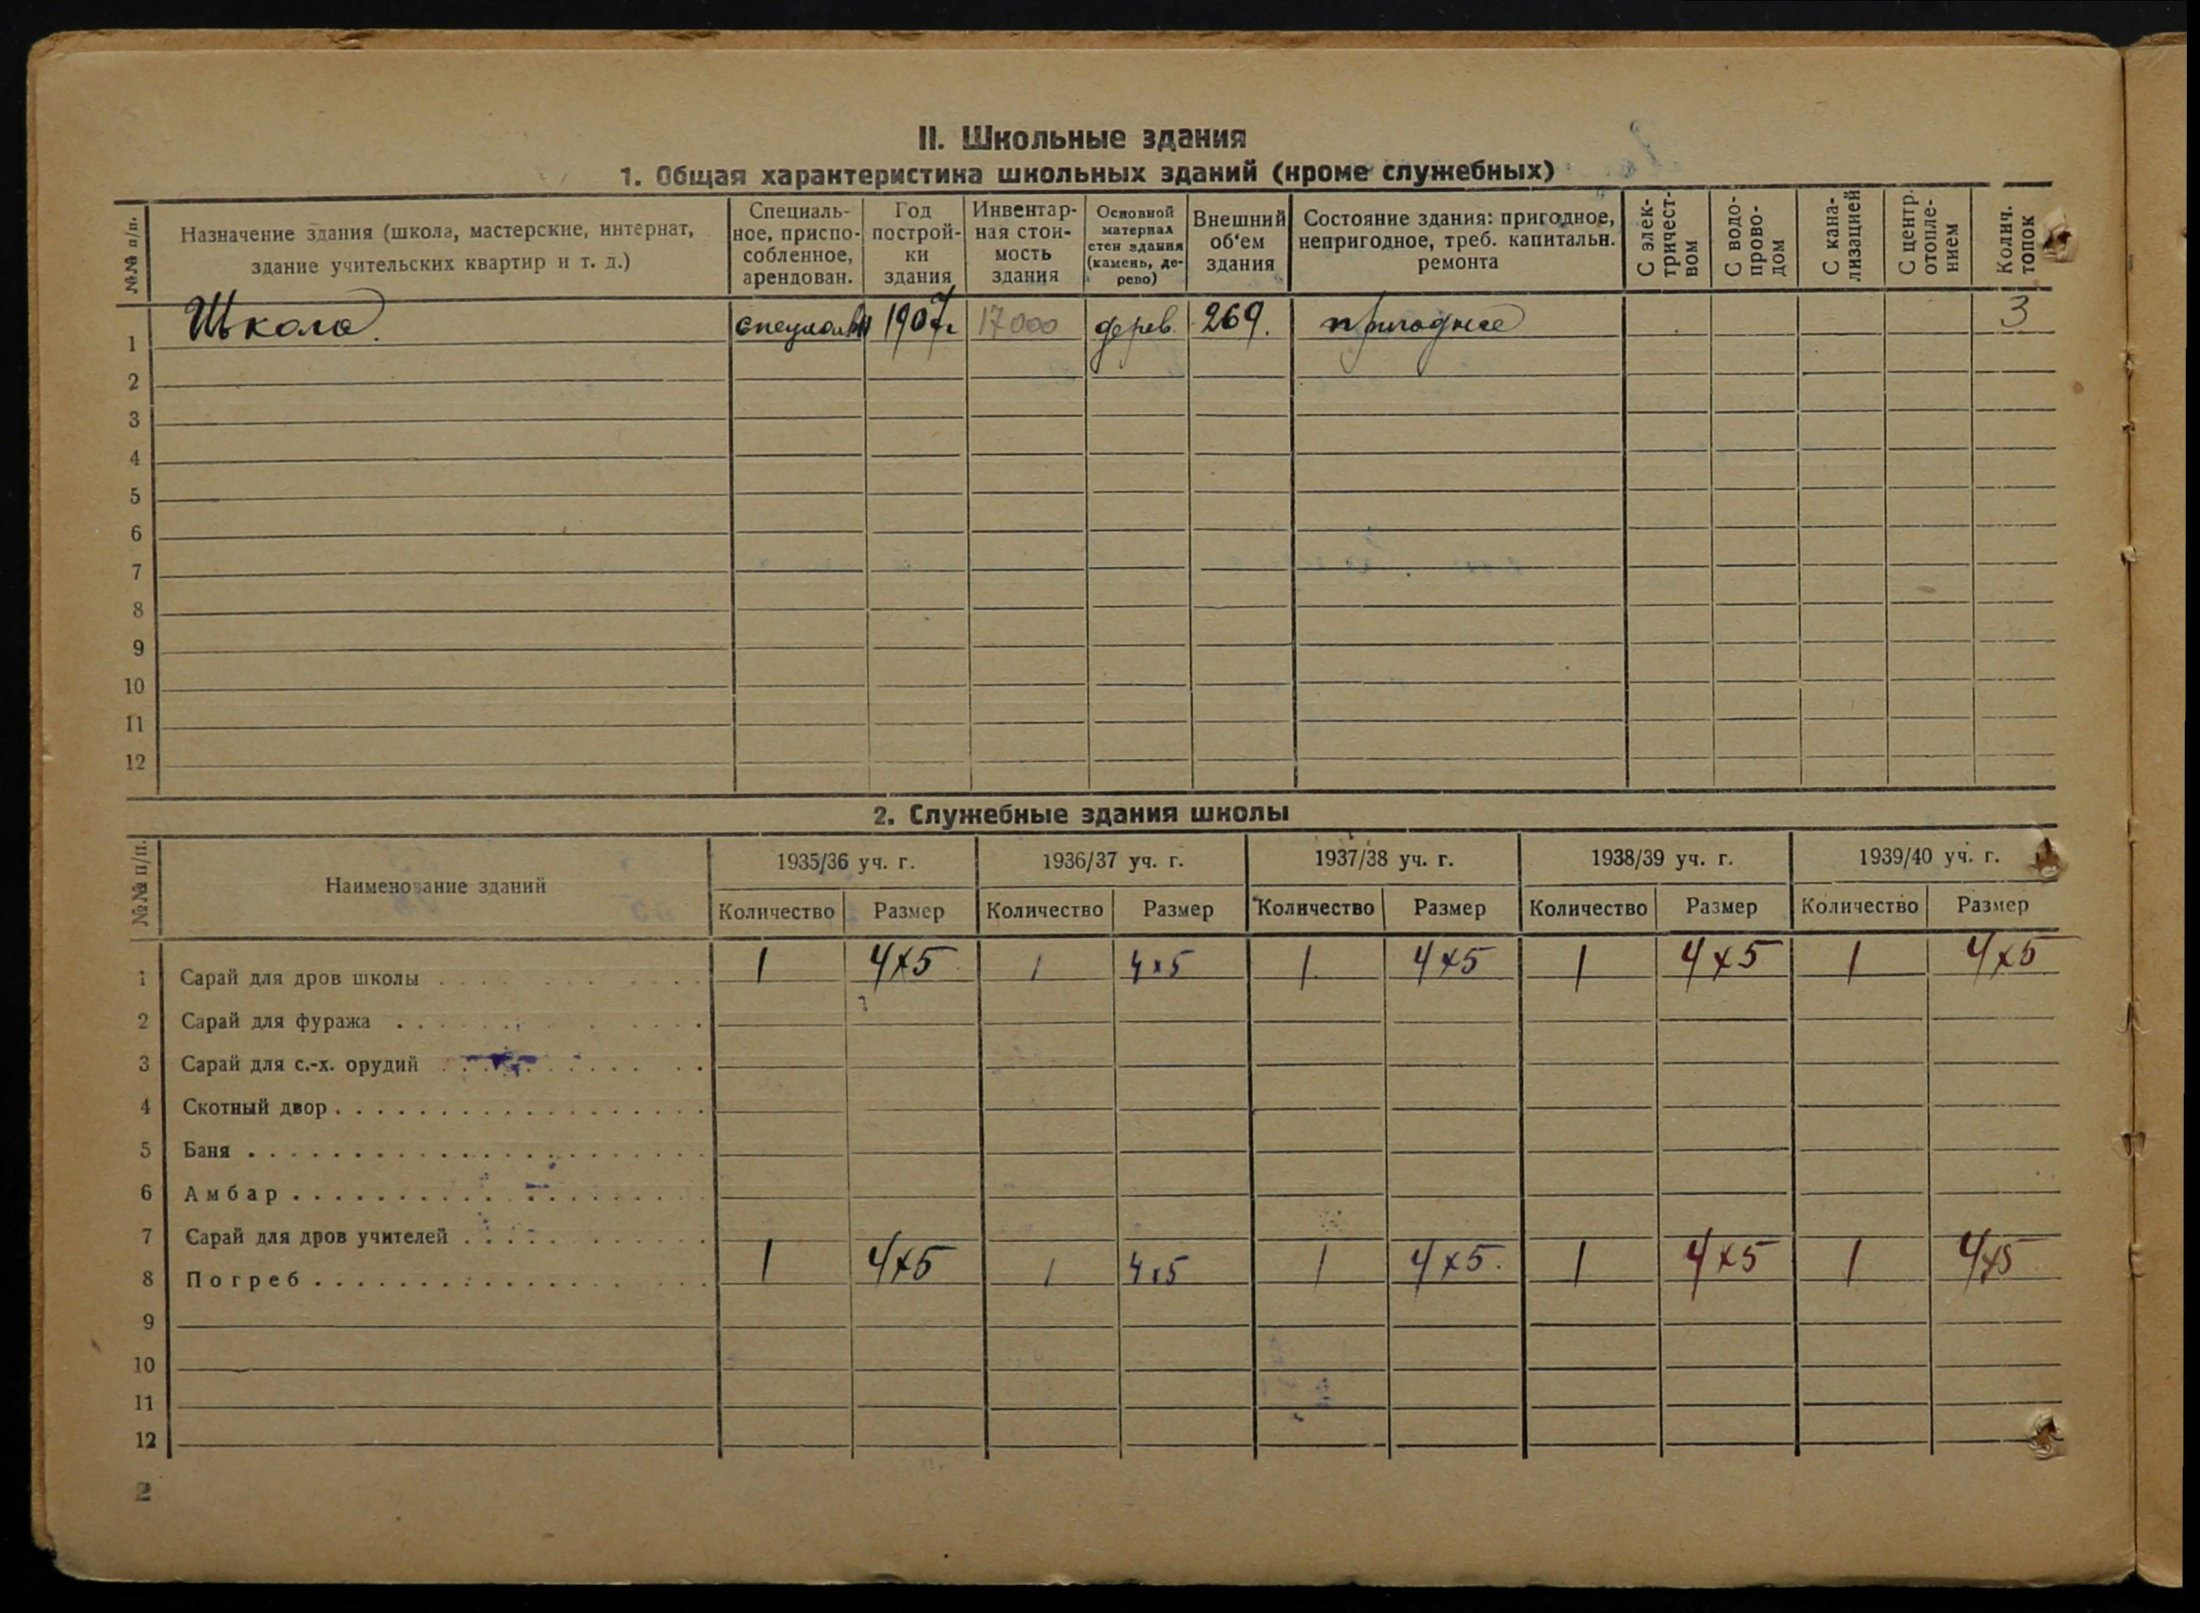 II. Школьные здания
1. Общая характеристика школьных зданий (кроме служебных)
№№ п/п. Назначение здания (школа, мастерские, интернат, здание учительских квартир и т. д.) Специаль-ное, приспо-собленное, арендован. Год построй-ки здания Инвентар-ная стои-мость здания Основной материал стен здания (камень, де-рево) Внешний об'ем здания Состояние здания: пригодное, непригодное, треб. капитальн. ремонта С элек-тричест-вом С водо-прово-дом С кана-лизацией С центр. отопле-нием Колич. топок
1 Школа. специальн 1907г 17000 дерев. 269. пригодное 3
2
3
4
5
6
7
8
9
10
11
12
2. Служебные здания школы
№№ п/п. Наименование зданий 1935/36 уч. г. 1936/37 уч. г. 1937/38 уч. г. 1938/39 уч. г. 1939/40 уч. г.
Количество Размер Количество Размер Количество Размер Количество Размер Количество Размер
1 Сарай для дров школы 1 4x5 1 4x5 1 4x5 1 4x5 1 4x5
2 Сарай для фуража
3 Сарай для с.-х. орудий
4 Скотный двор
5 Баня
6 Амбар
7 Сарай для дров учителей
8 Погреб 1 4x5 1 4x5 1 4x5. 1 4x5 1 4x5
9
10
11
12
2